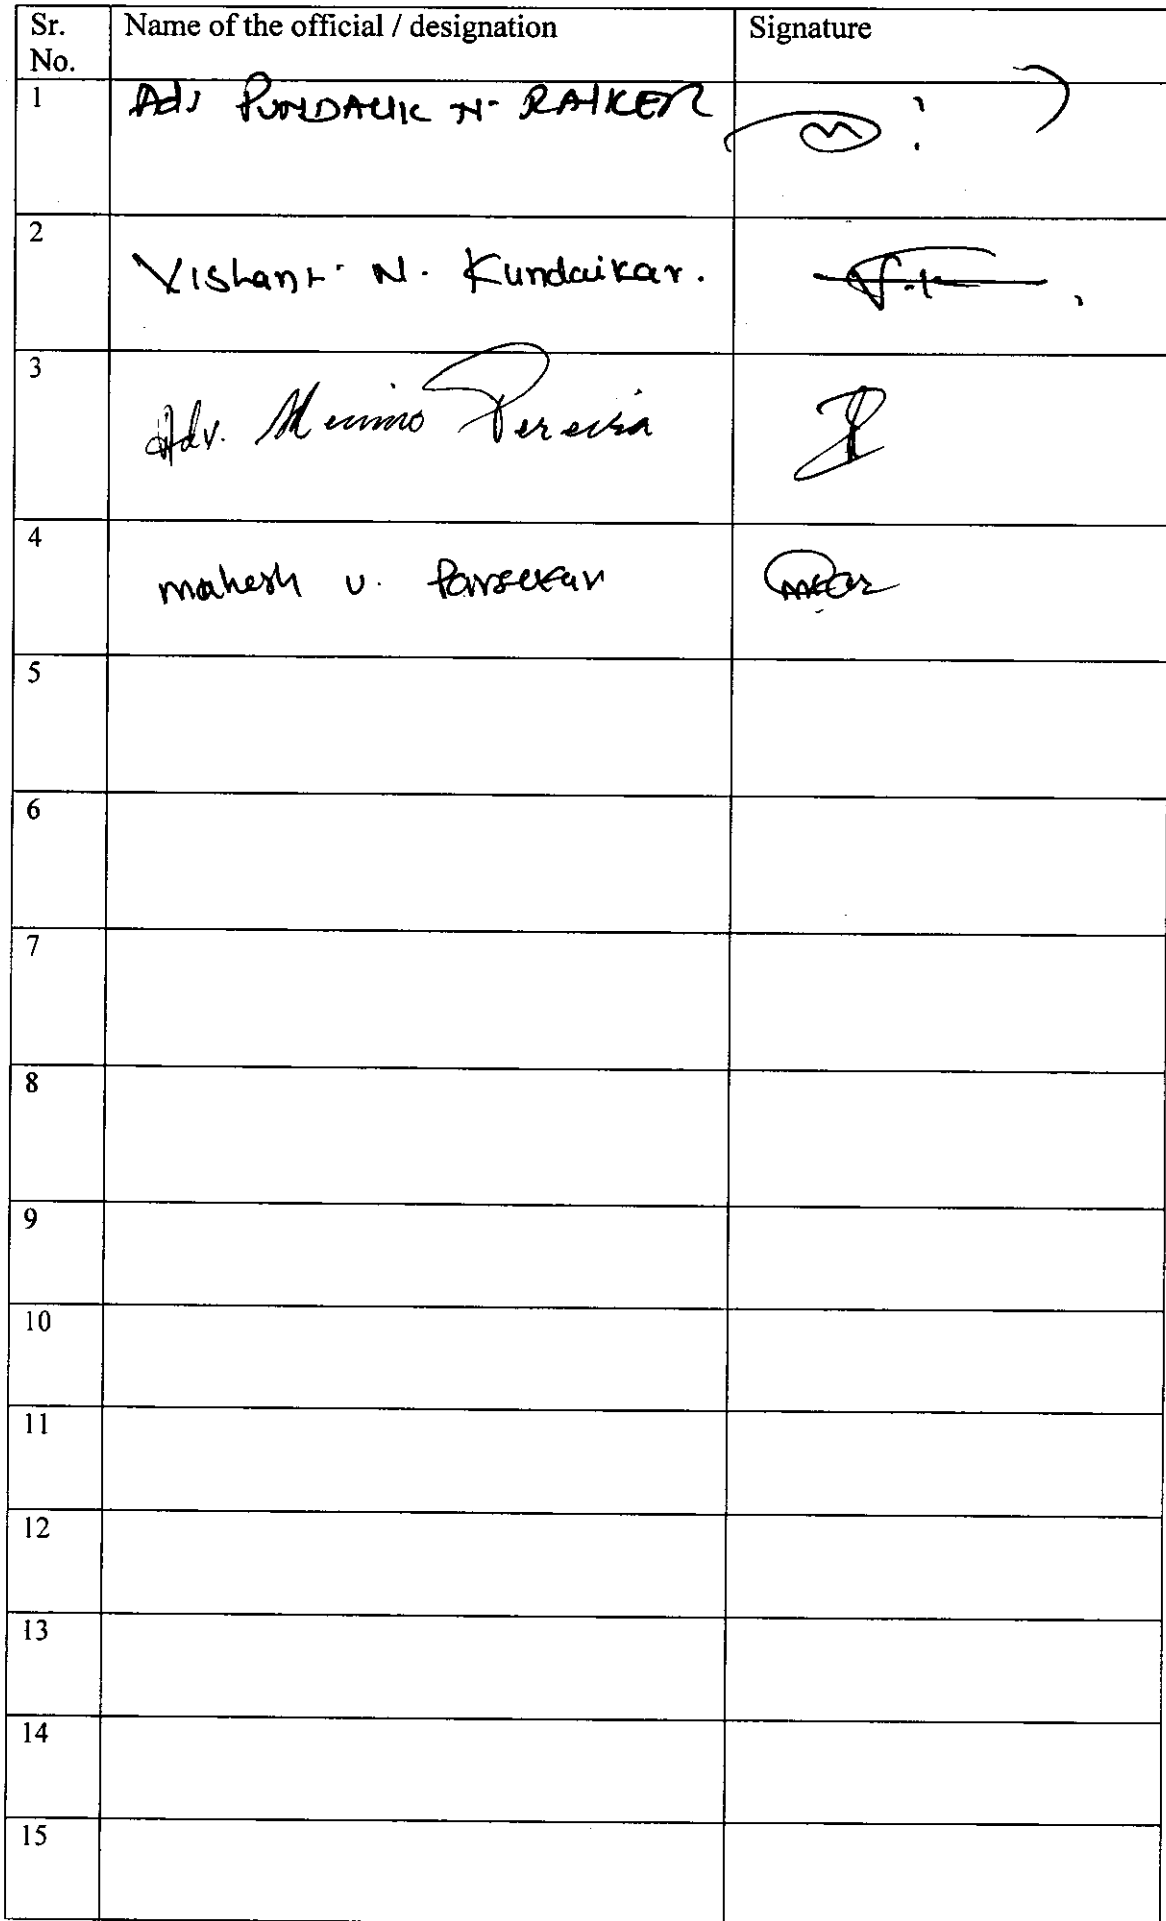 Sr. No. Name of the official / designation Signature
1 Adv PUNDALIK N. RAIKER
2 Vishant. N. Kundaikar.
3 Adv. Pereira
4 mahesh v. Parsekar
5
6
7
8
9
10
11
12
13
14
15